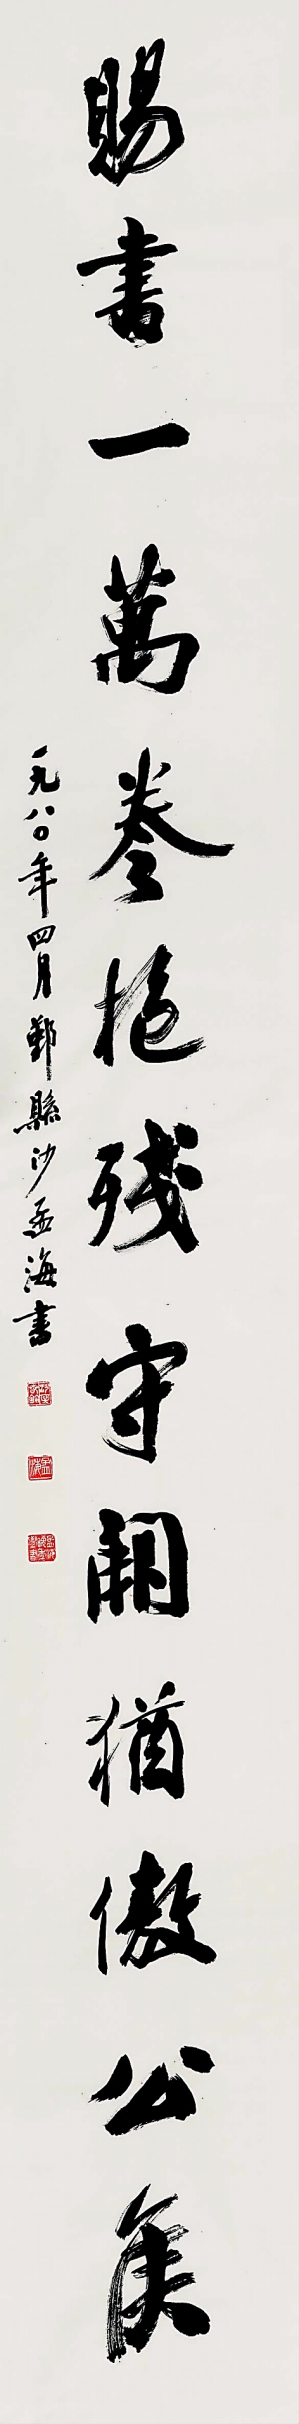 賜書一萬卷抱殘守闕猶傲公矦
一九八〇年四月鄞縣沙孟海書